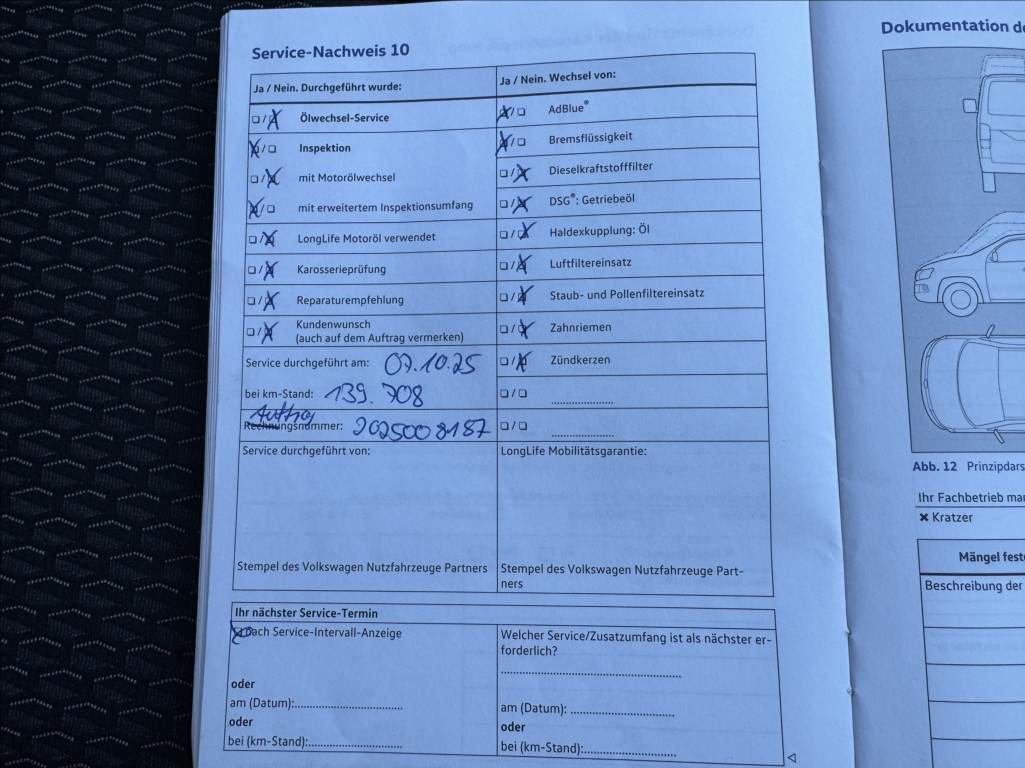 Service-Nachweis 10
Ja / Nein. Durchgeführt wurde:
☐ / ☒ Ölwechsel-Service
☒ / ☐ Inspektion
☐ / ☒ mit Motorölwechsel
☒ / ☐ mit erweitertem Inspektionsumfang
☐ / ☒ LongLife Motoröl verwendet
☐ / ☒ Karosserieprüfung
☐ / ☒ Reparaturempfehlung
☐ / ☒ Kundenwunsch
(auch auf dem Auftrag vermerken)
Service durchgeführt am: 07.10.25
bei km-Stand: 139.708
Auftrag
Rechnungsnummer: 2025008187
Service durchgeführt von:
Stempel des Volkswagen Nutzfahrzeuge Partners
Ja / Nein. Wechsel von:
☒ / ☐ AdBlue®
☒ / ☐ Bremsflüssigkeit
☐ / ☒ Dieselkraftstofffilter
☐ / ☒ DSG®: Getriebeöl
☐ / ☒ Haldexkupplung: Öl
☐ / ☒ Luftfiltereinsatz
☐ / ☒ Staub- und Pollenfiltereinsatz
☐ / ☒ Zahnriemen
☐ / ☒ Zündkerzen
☐ / ☐ ....................
☐ / ☐ ....................
LongLife Mobilitätsgarantie:
Stempel des Volkswagen Nutzfahrzeuge Part-
ners
Ihr nächster Service-Termin
☒ nach Service-Intervall-Anzeige
oder
am (Datum):..............................
oder
bei (km-Stand):..........................
Welcher Service/Zusatzumfang ist als nächster er-
forderlich?
..................................................
am (Datum): .............................
oder
bei (km-Stand):..........................
Dokumentation
Abb. 12 Prinzipdars
Ihr Fachbetrieb
✖ Kratzer
Mängel fest
Beschreibung der